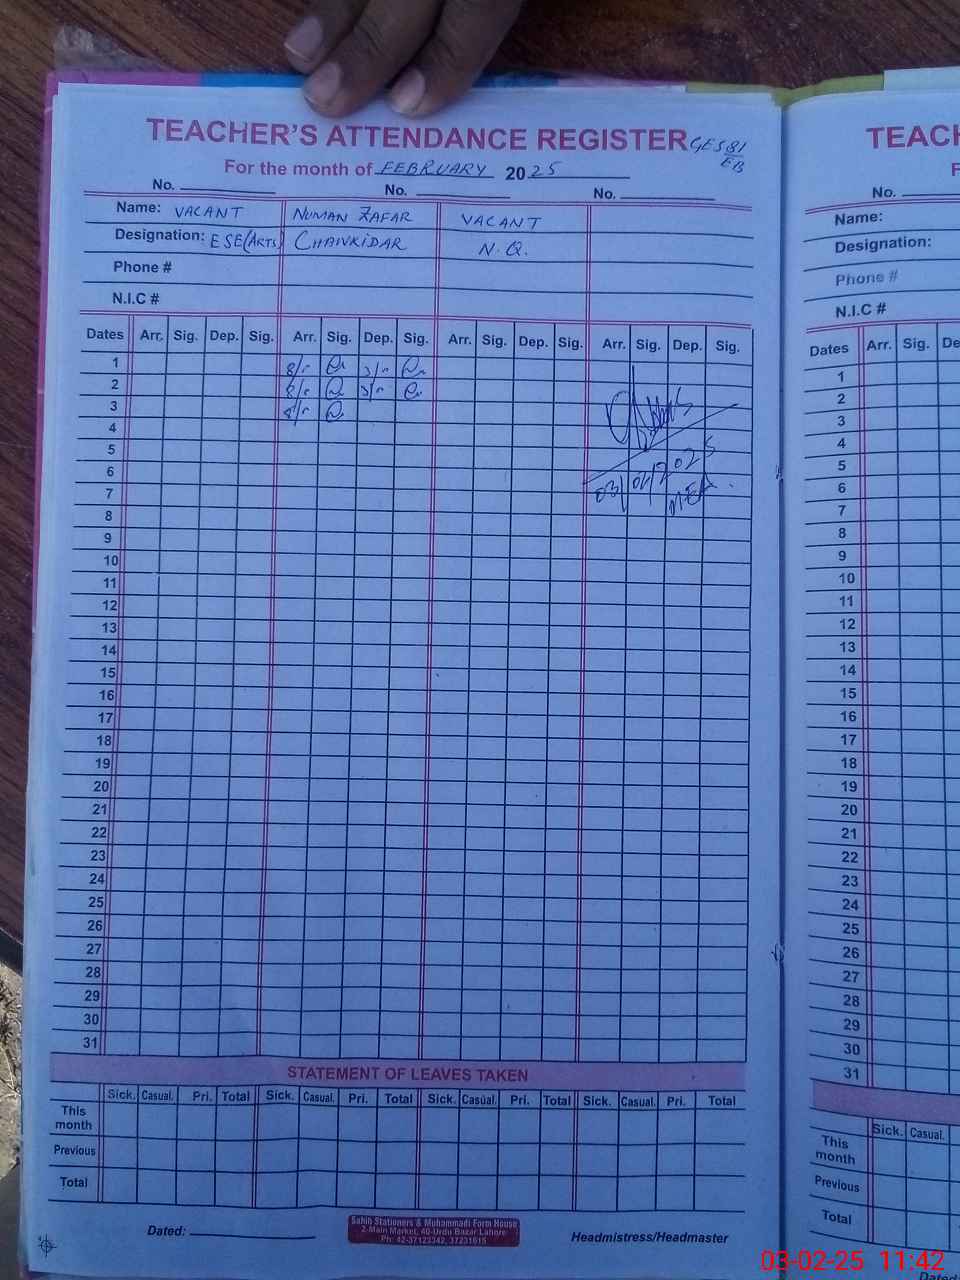 TEACHER'S ATTENDANCE REGISTER GES 81/EB
For the month of FEBRUARY 2025
No. No. No.
Name: VACANT NUMAN ZAFAR VACANT
Designation: ESE(ARTS) CHAIVKIDAR N.Q.
Phone #
N.I.C #
Dates Arr. Sig. Dep. Sig. Arr. Sig. Dep. Sig. Arr. Sig. Dep. Sig. Arr. Sig. Dep. Sig.
1
2
3
4
5
6
7
03/02/2025
MEA.
8
9
10
11
12
13
14
15
16
17
18
19
20
21
22
23
24
25
26
27
28
29
30
31
STATEMENT OF LEAVES TAKEN
Sick. Casual. Pri. Total Sick. Casual. Pri. Total Sick. Casual. Pri. Total Sick. Casual. Pri. Total
This month
Previous
Total
Dated:
Sahib Stationers & Muhammadi Form House
2-Main Market, 40-Urdu Bazar Lahore
Ph: 42-37123342, 37231615
Headmistress/Headmaster
TEACH
F
No.
Name:
Designation:
Phone #
N.I.C #
Dates Arr. Sig. De
1
2
3
4
5
6
7
8
9
10
11
12
13
14
15
16
17
18
19
20
21
22
23
24
25
26
27
28
29
30
31
Sick. Casual.
This month
Previous
Total
Dated
03-02-25 11:42